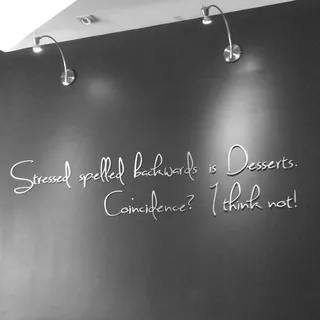 Stressed spelled backwards is Desserts.
Coincidence? I think not!